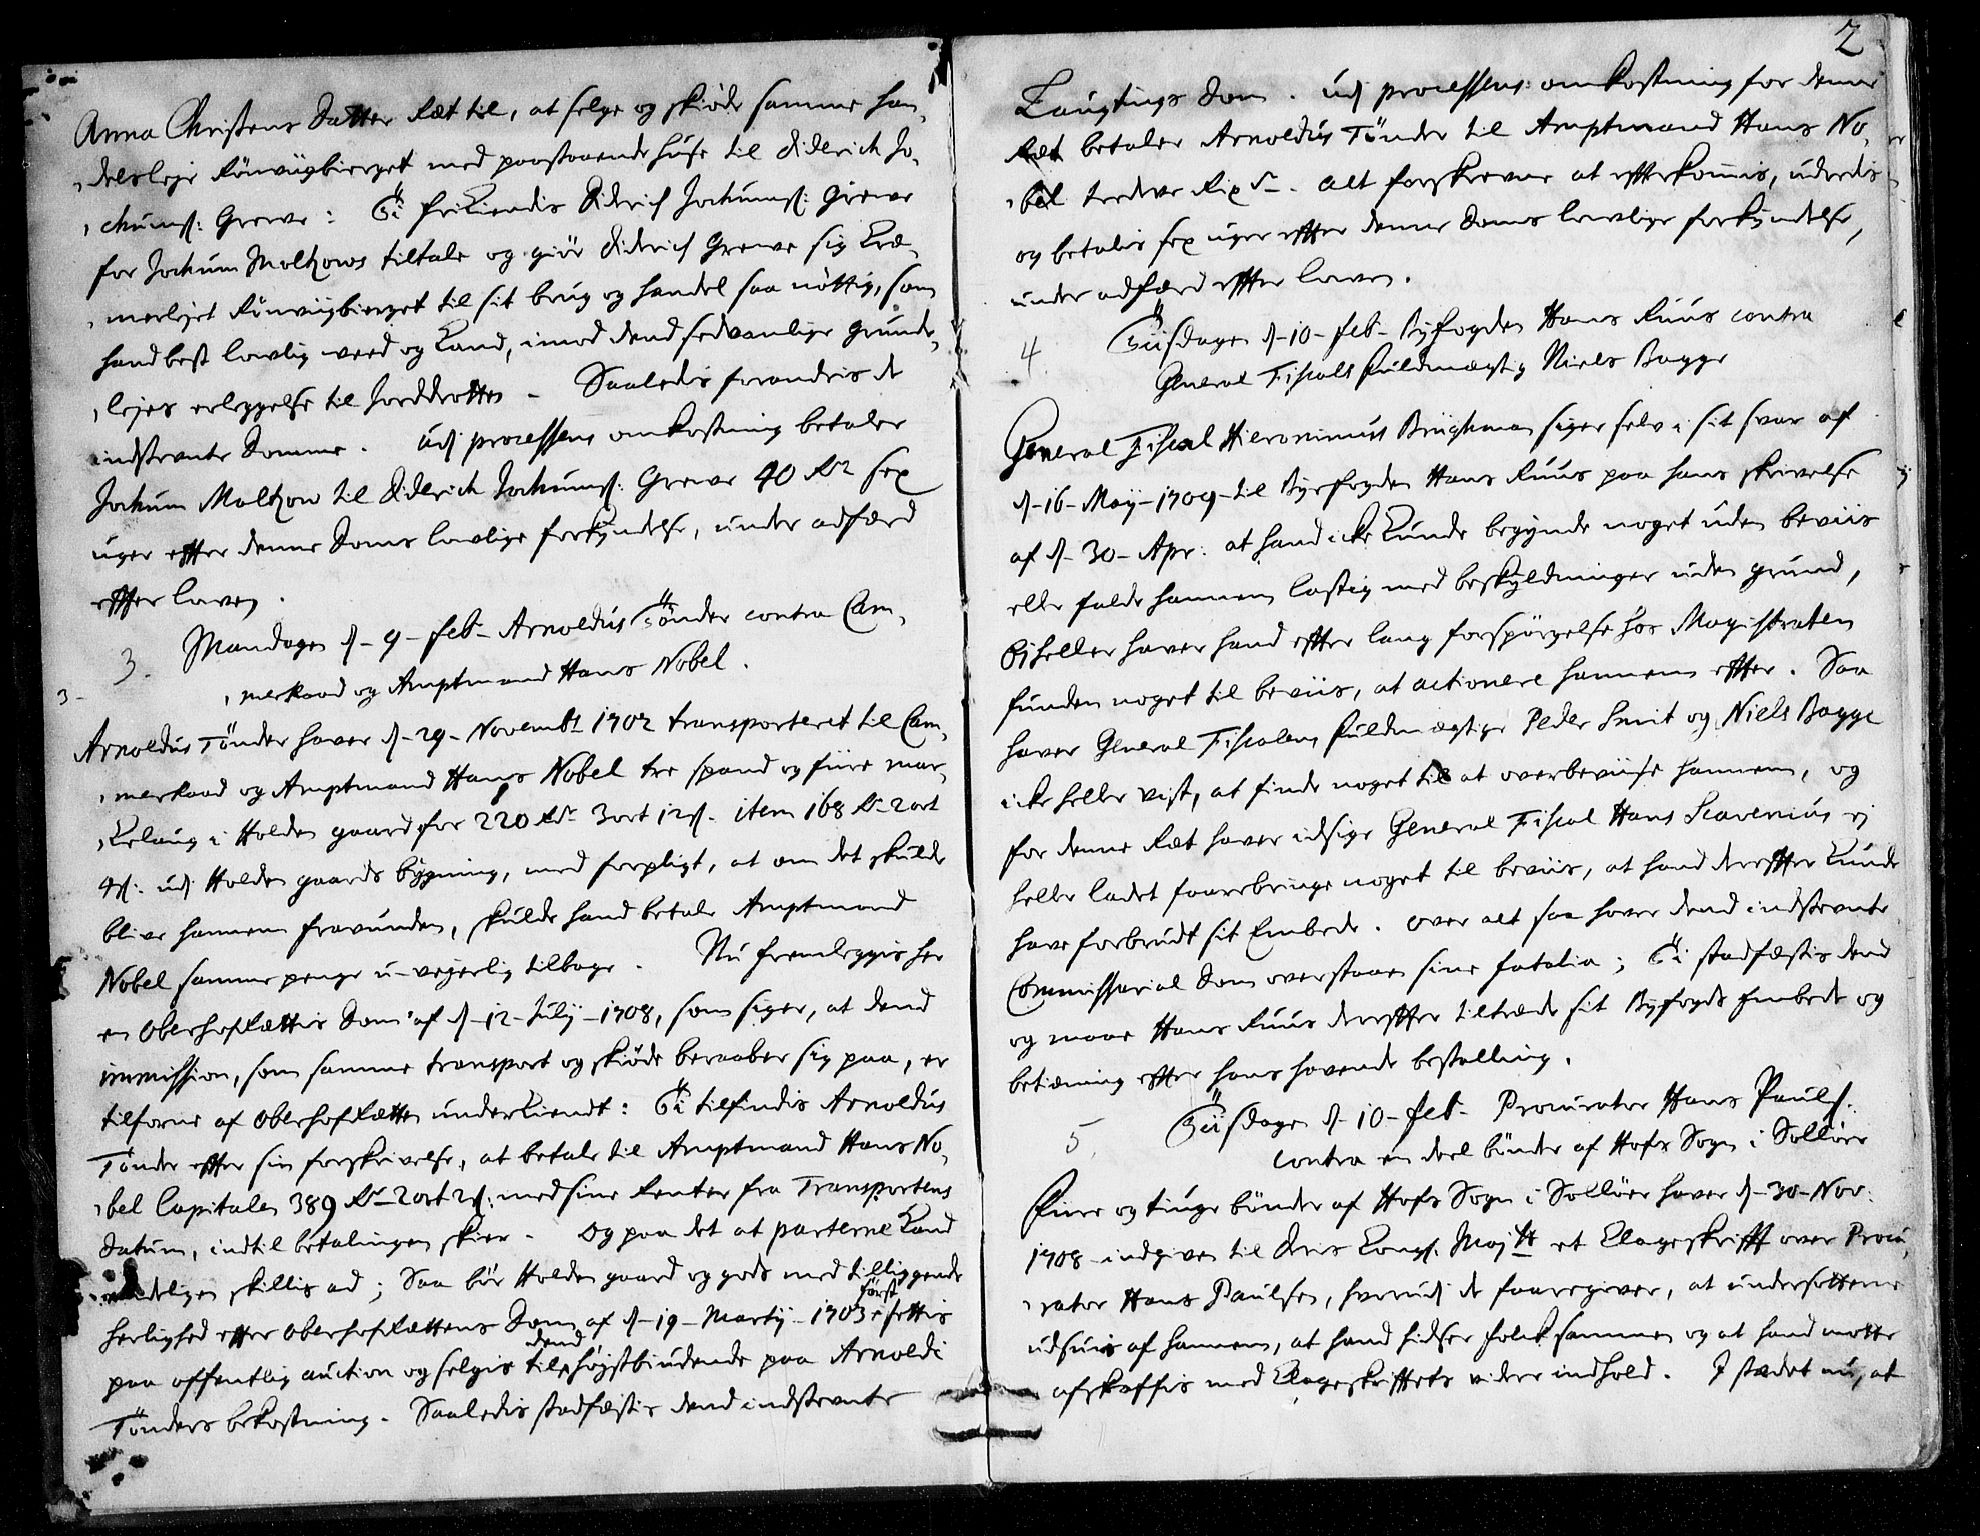 Anna Christens Datter Ræt til, at selge og skiøde samme han,
,delsleje Rönvügbierget med paastaaende huse til Diderich Jo,
,chumsß: Greve: Ti frikiendis Diderich Jochumsß: Greve
for Jochum Moltzows tiltale og giör Diderich Greve sig Kræ,
,merlejet Rönvügbierget til sit brug og handel saa nöttig, som
hand best lovlig veed og Kand, imod dend sedvanlige grunde,
,lejes erleggelse til Jorddrotten. Saaledis forandris de
indstevnte Domme. Udj processens omkostning betaler
Jochum Moltzow til Diderich Jochumsß: Greve 40 Rdr sex
uger effter denne Doms lovlige forkyndelse, under adfærd
effter loven.
3. Mandagen d-9-feb- Arnoldus Tönder contra Cam,
3-
,merraad og Amptmand Hans Nobel.
Arnoldus Tönder haver d-29-Novembr 1702 transporteret til Cam,
,merraad og Amptmand Hans Nobel tre spand og fiire mar,
,Kelaug i Holden gaard for 220 Rdr 3 ort 12ß. item 168 Rdr 2 ort
4ß: udj Holden gaards bÿgning, med forpligt, at om det skulde
blive hannem fravunden, skulde hand betale Amptmand
Nobel samme penge u-vejerlig tilbage. Nu fremleggis her
en Oberhofrættis Dom af d-12-Julij-1708, som siger, at dend
immission, som samme transport og skiöde beraaber sig paa, er
tilforne af Oberhofrætten underkiendt: Ti tilfindis Arnoldus
Tönder effter sin forskrivelse, at betale til Amptmand Hans No,
,bel Capitalen 389 Rdr 2 ort 2ß: med sine Renter fra Transportens
Datum, indtil betalingen skier. Og paa det at parterne Kand
endeligen skillis ad; Saa bör Holden gaard og gods med tilliggende
herlighed effter Oberhofrættens Dom af d-19-Martij-1703 först settis
paa offentlig auction og selgis til dend höjstbiudende paa Arnoldi
Tönders bekostning. Saaledis stadfæstis dend indstevnte
2
Laugtings Dom. Udj processens omkostning for denne
Ræt betaler Arnoldus Tönder til Amptmand Hans No,
,bel tredeve Rixdr. Alt forskrevne at effterkommis, uderdis
og betalis sex uger effter denne Doms lovlige forkyndelse,
under adfærd effter loven.
4. Tiisdagen d-10-feb- Byfogden Hans Ruus contra
General Fiscals fuldmægtig Niels Bagge
General Fiscal Hieronimus Brüghman siger selv i sit svar af
d-16-Maij-1709-til Byefogden Hans Ruus paa hans skrivelse
af d-30-Apr: at hand icke Kunde begynde noget uden beviis
eller falde hannem lastig med beskyldninger uden grund,
Ej heller haver hand effter lang forspörgelse hos Magistraten
funden noget til beviis, at actionere hannem effter. Saa
haver General Fiscalens fuldmægtige Peder Smit og Niels Bagge
icke heller vist, at finde noget til at overbeviise hannem, og
for denne Ræt haver idsige General Fiscal Hans Scavenius ej
heller ladet faarebringe noget til beviis, at hand dereffter Kunde
have forbrudt sit Embede. Over alt saa haver dend indstevnte
Commissarial Dom overstaaen sine fatalia; Ti stadfæstis dend
og maae Hans Ruus dereffter tiltræde sit Byfogds Embede og
betiening effter hans havende bestalling.
5. Tiisdagen d-10-feb- Procurator Hans Paulsß.
contra en deel bönder af Hofs Sogn i Sollöer
Fiire og tiuge bönder af Hofs Sogn i Sollöer haver d-30-Nov:
1708-indgiven til Deris Kongl. Majtt et Klageskrifft over Procu,
,rator Hans Paulsen, hvorudj de faaregiver, at undersotterne
udsuis af hannem, at hand hidser folck sammen og at hand motte
afskaffis med Klageskrifftets vidre indhold. I stædet nu, at